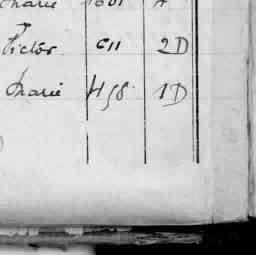 Marie 1601 A
Victor 611 2D
Marie 458 1D